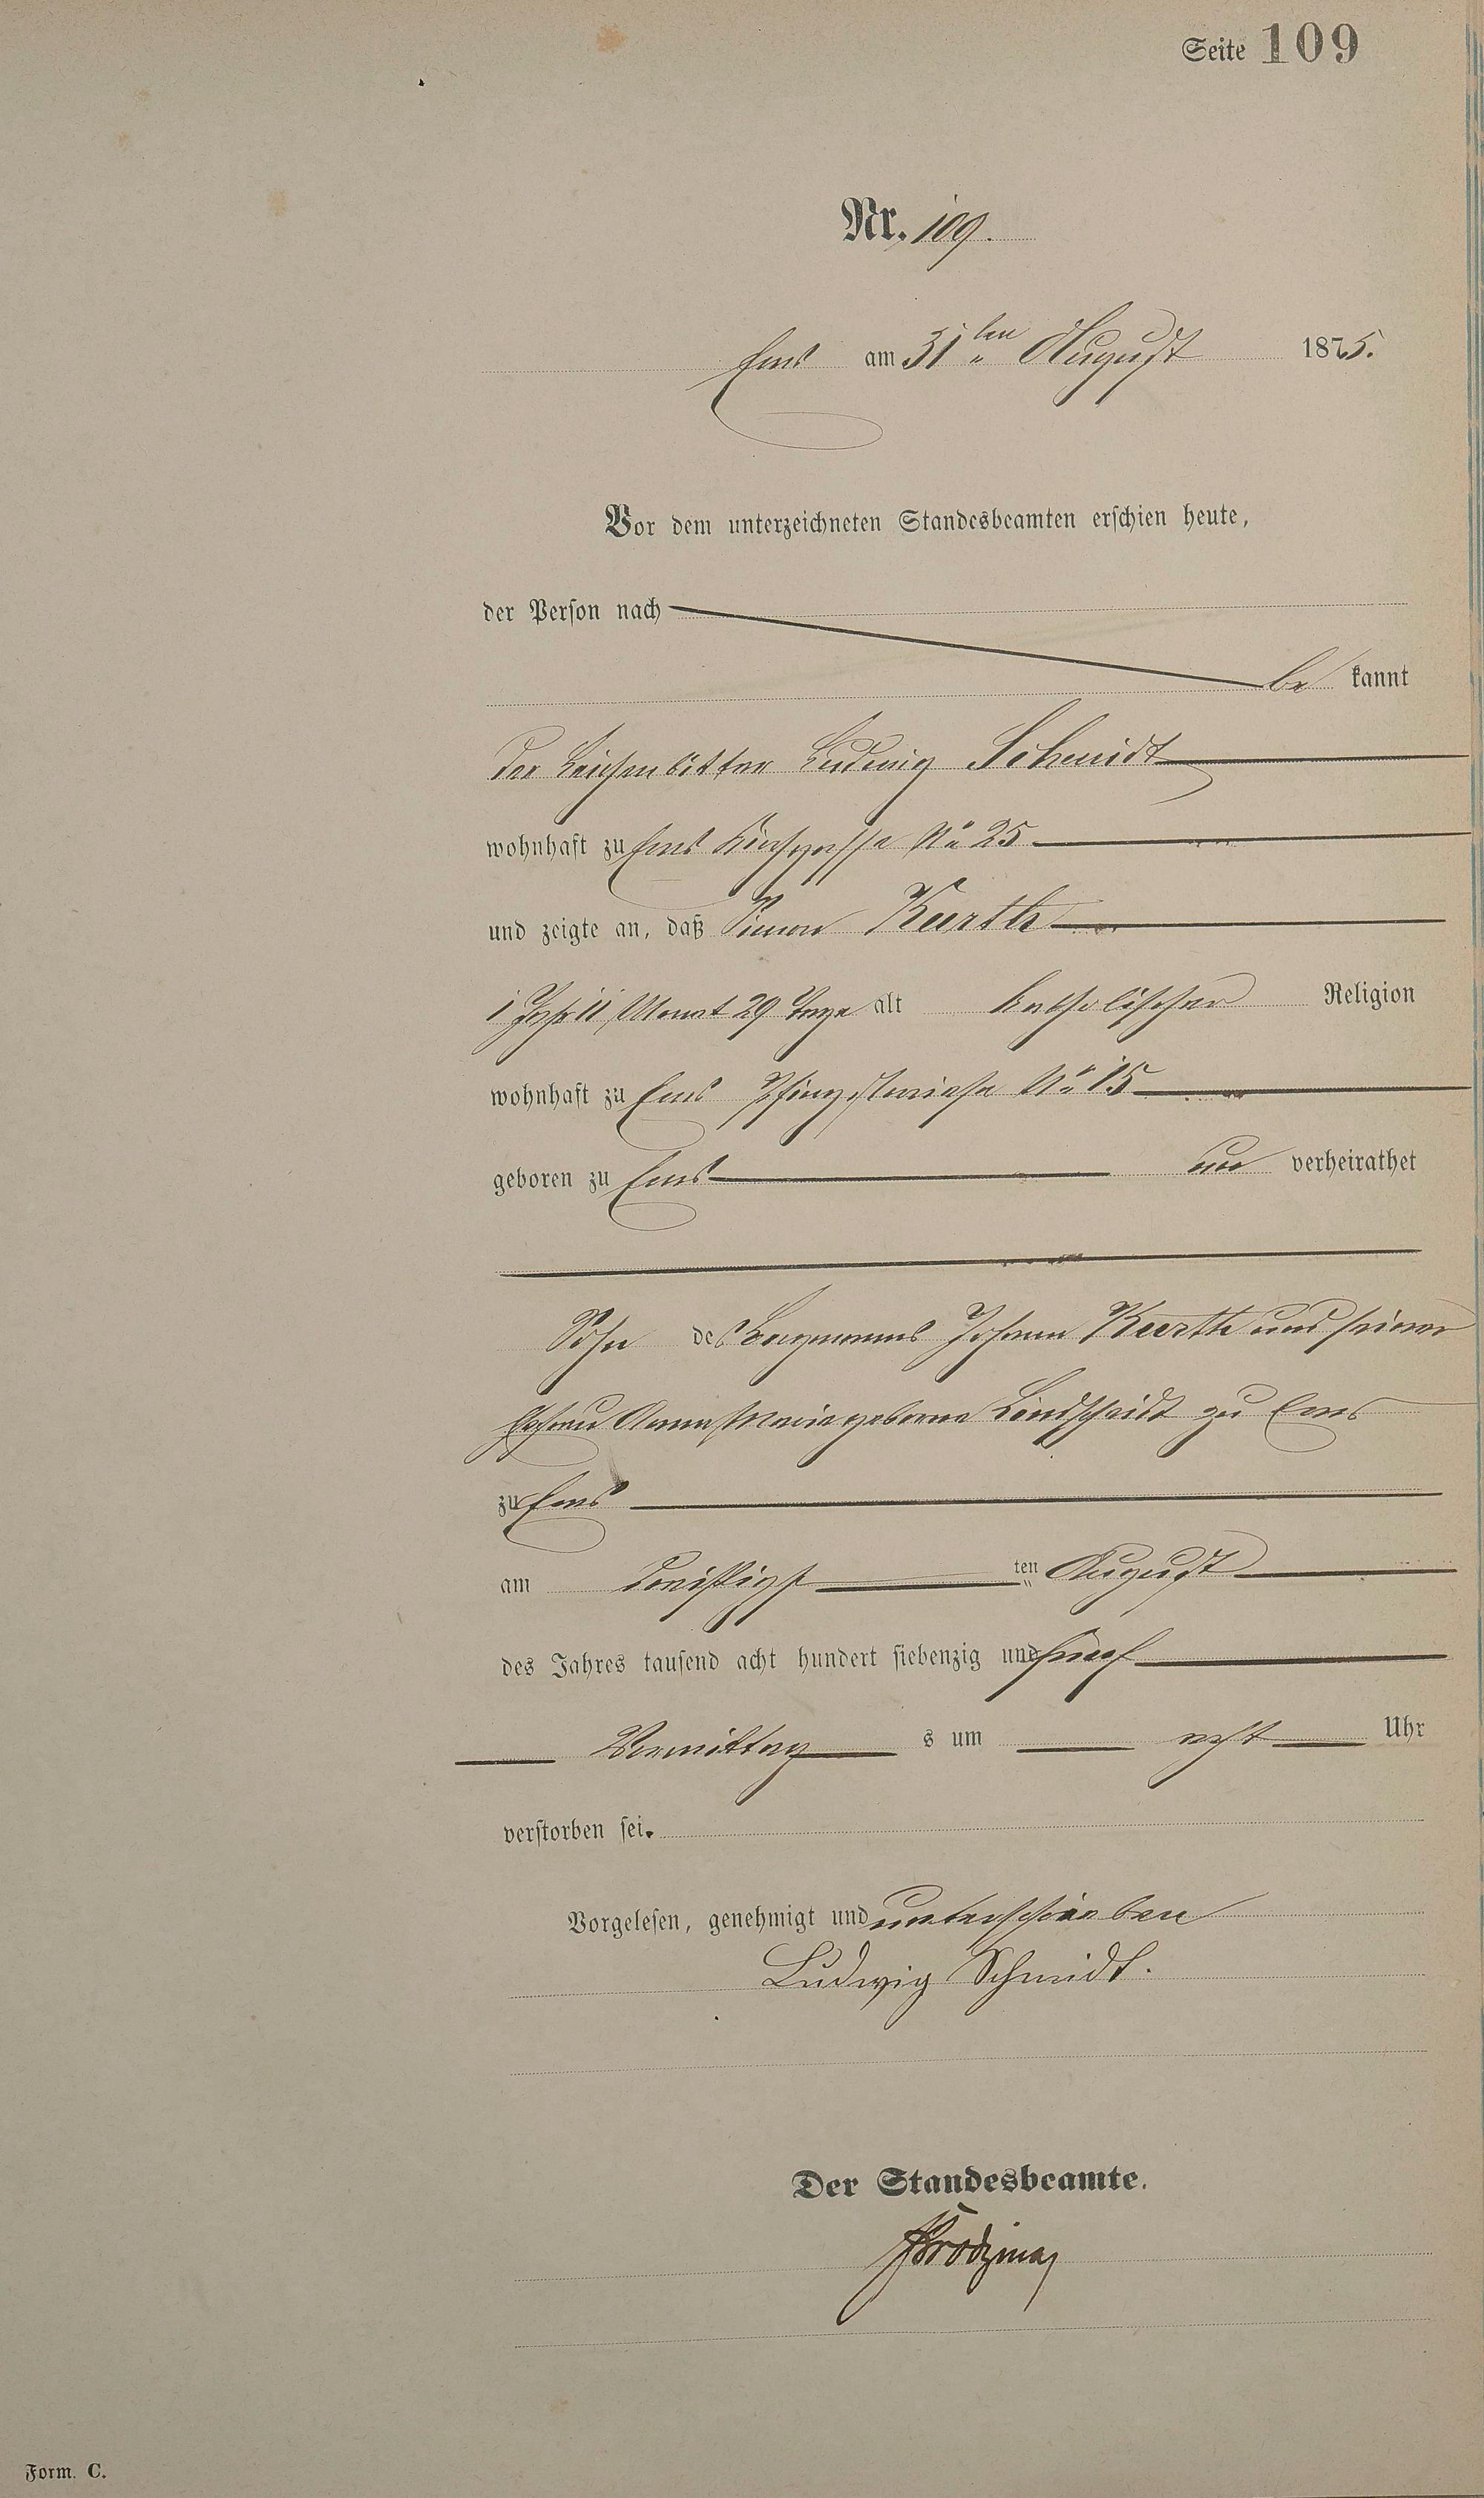 Seite 109
Nr. 109.
Ems am 31ten August 1875.
Vor dem unterzeichneten Standesbeamten erschien heute,
der Person nach
be kannt
der Leichenbitter Ludwig Schmidt
wohnhaft zu Ems Kirchgasse No 25
und zeigte an, daß Simon Kurth
1 Jahr 11 Monat 29 Tage alt katholischer Religion
wohnhaft zu Ems Pfingstwiese No 15
geboren zu Ems un verheirathet
Sohn des Bergmanns Johann Kurth und seiner
Ehefrau Anna Maria geborene Lindscheidt zu Ems
zu Ems
am dreißigst ten August
des Jahres tausend acht hundert siebenzig und fünf
Vormittag s um acht Uhr
verstorben sei.
Vorgelesen, genehmigt und unterschrieben
Ludwig Schmidt.
Der Standesbeamte.
Form. C.